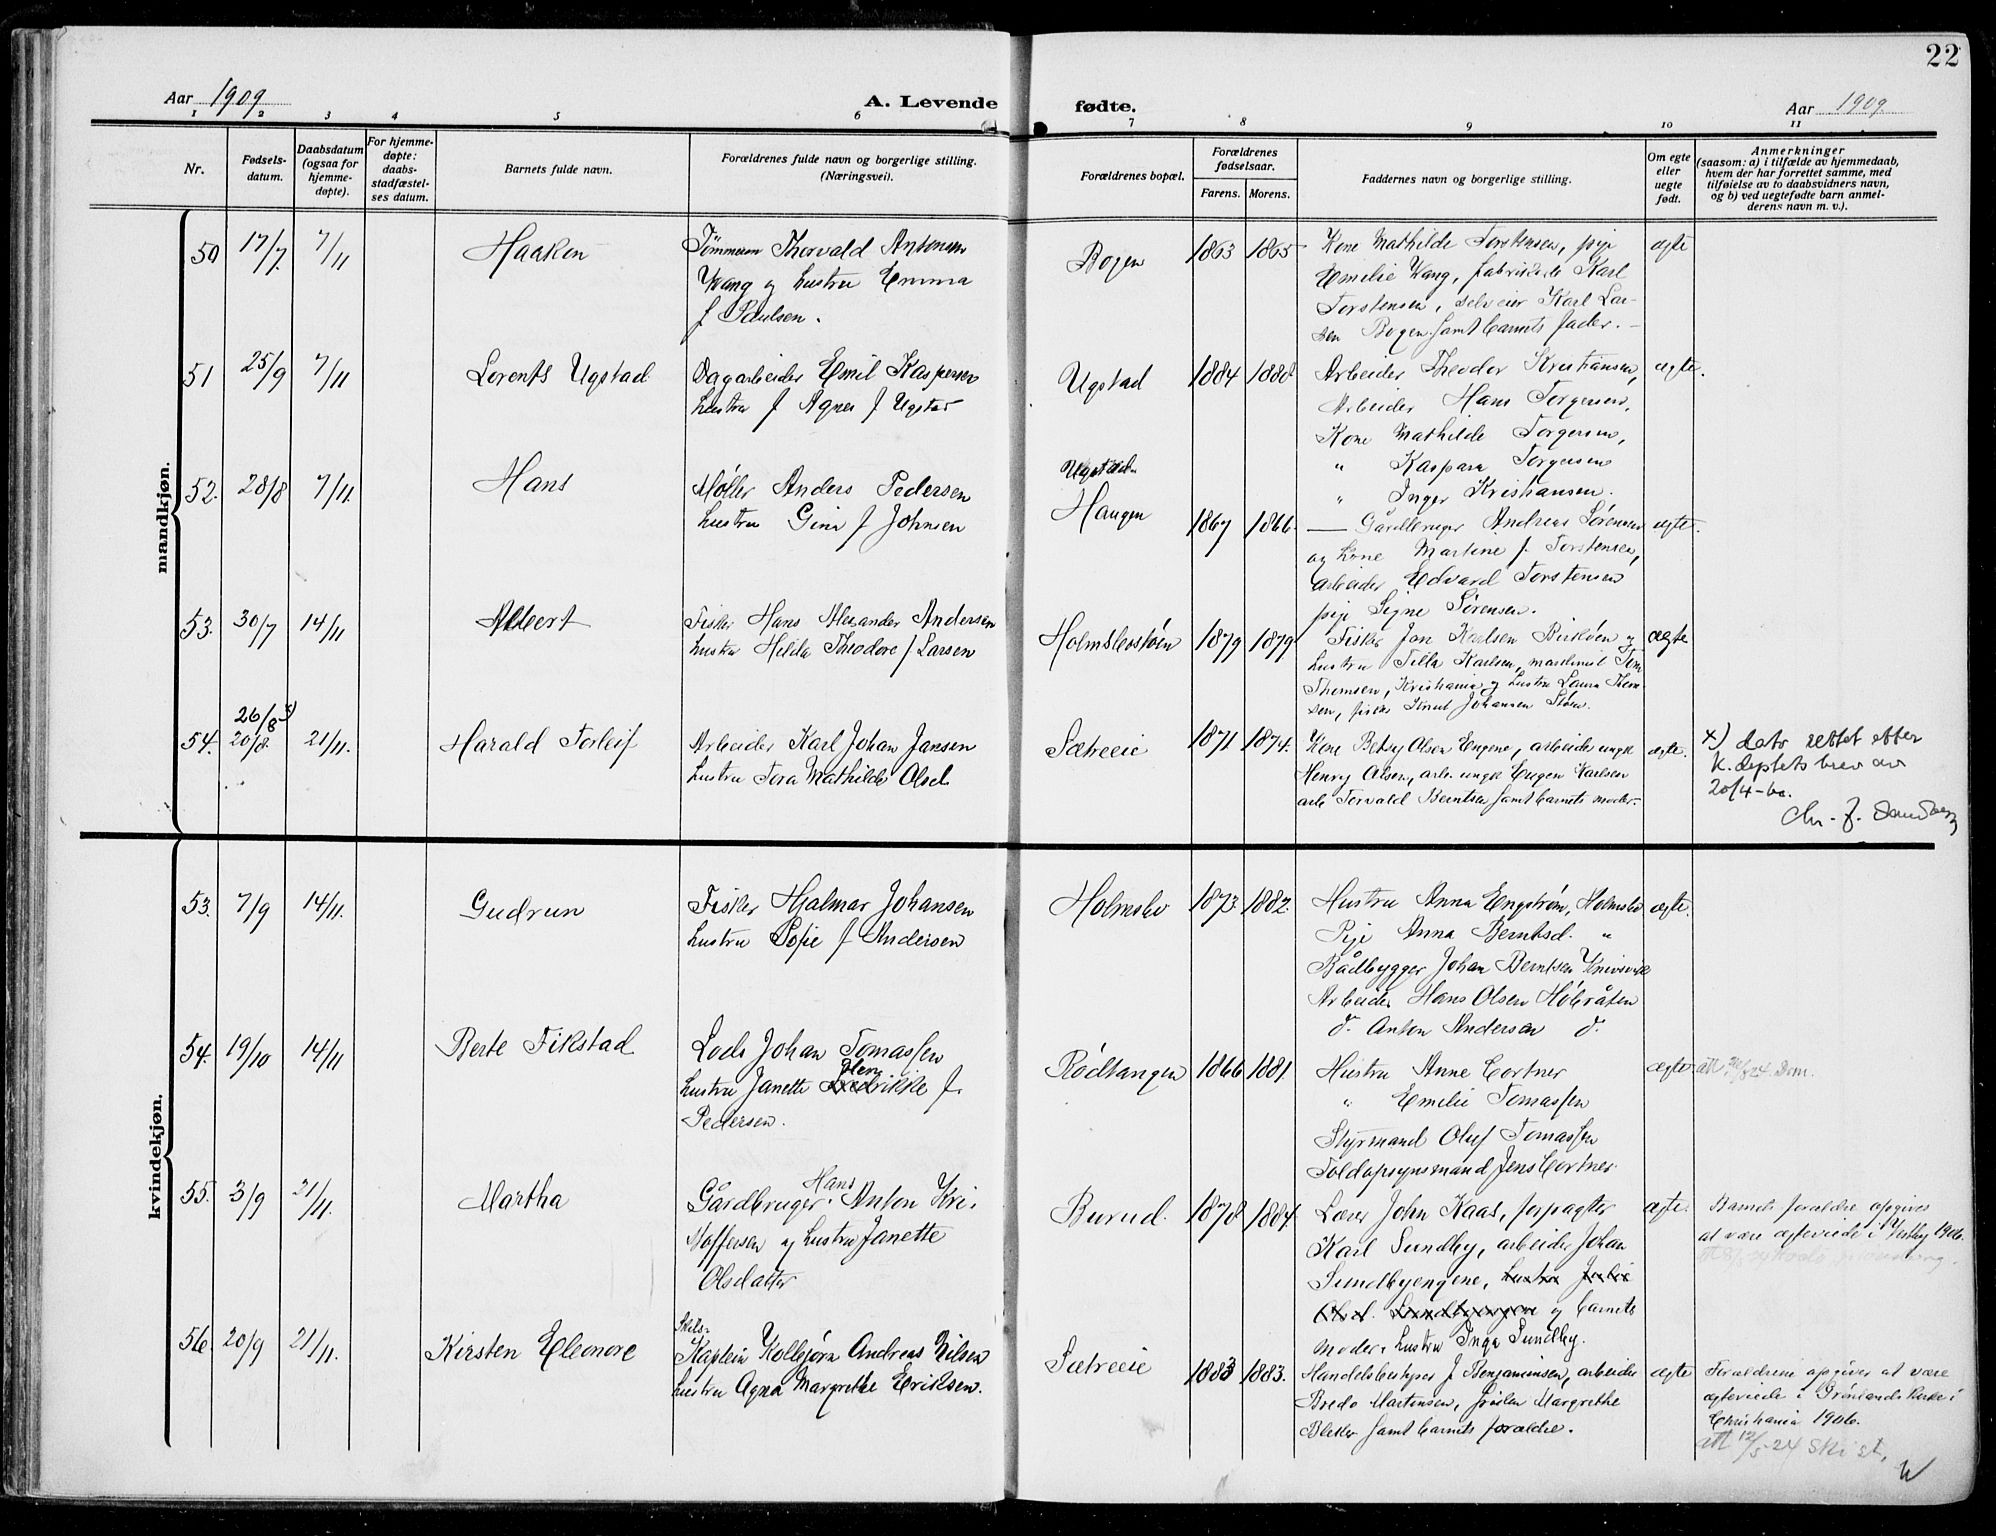 22
Aar 1909
A. Levende fødte.
Aar 1909.
1 2 3 4 5 6 7 8 9 10 11
Nr.
Fødsels-
datum.
Daabsdatum
(ogsaa for
hjemme-
døpte).
For hjemme-
døpte:
daabs-
stadfæstel-
ses datum.
Barnets fulde navn.
Forældrenes fulde navn og borgerlige stilling.
(Næringsvei).
Forældrenes bopæl.
Forældrenes
fødselsaar.
Farens. Morens.
Faddernes navn og borgerlige stilling.
Om egte
eller
uegte
født.
Anmerkninger
(saasom: a) i tilfælde av hjemmedaab,
hvem der har forrettet samme, med
tilføielse av to daabsvidners navn,
og b) ved uegtefødte barn anmel-
derens navn m. v.).
mandkjøn.
50 17/7 7/11 Haakon
Tømmerm Thorvald Antonsen
Wang og hustru Emma
f Paulsen.
Bogen 1863 1865
Kone Mathilde Torstensen, pige
Emilie Wang, fabrikeier Karl
Torstensen, selveier Karl Lar-
sen Bogen samt barnets fader. –
ægte
51 25/9 7/11 Lorents Ugstad
Dagarbeider Emil Kaspersen
hustru f Agnes f Ugstad
Ugstad 1884 1888
Arbeider Theodor Kristiansen,
Arbeider Hans Torgersen,
Kone Mathilde Torgersen,
" Kaspara Torgersen
" Inger Kristiansen.
ægte.
52. 28/8 7/11. Hans
Møller Anders Pedersen
hustru Gina f Johnsen
Ugstad
Haugen 1867 1866.
— Gårdbruger Andreas Sørensen
og kone Martine f. Torstensen,
arbeider Edvard Torstensen
pige Signe Sørensen.
ægte.
53. 30/7 14/11 Albert
Fisker Hans Alexander Andersen
hustru Hilda Theodore f. Larsen
Holmsbostøen 1879 1879
Fisker Jon Karlsen Birkøen og
hustru Tilla Karlsen, maskinist Tom
Thomsen, Kristiania og hustru Laura Thom-
sen, fisker Knut Johansen Støen.
ægte
54. 26/8 x)
20/8. 21/11. Harald Torleif
Arbeider Karl Johan Jansen
hustru Tora Mathilde Olsd.
Sætreeie 1871 1874.
Kone Betsy Olsen Engene, arbeider ungk
Henry Olsen, arb. ungk Eugen Karlsen
arb Torvald Berntsen samt barnets moder.-
ægte.
x) dato rettet etter
K. deptets brev av
20/4-60.
kvindekjøn.
53. 7/9 14/11. Gudrun
Fisker Hjalmar Johansen
hustru Sofie f Andersen
Holmsbo 1873 1882.
Hustru Anna Engstrøm, Holmsbo
Pige Anna Berntsd. "
Bådbygger Johan Berntsen Knivsvik
Arbeider Hans Olsen Høbråten
d. Anton Andersen d.
ægte.
54. 19/10 14/11 Berte Fikstad
Lods Johan Tomassen
hustru Janette Hendrikke f.
Pedersen.
Rødtangen 1866 1881.
Hustru Anne Cortner
" Emilie Tomassen
Styrmand Oluf Tomassen
Toldopsynsmand Jens Cortner.
ægte.
55. 3/9 21/11. Martha
Gårdbruger Hans Anton Kri-
stoffersen og hustru Janette
Olsdatter
Burud. 1878 1884.
Lærer John Kaas, forpagter
Karl Sundby, arbeider Johan
Sundbyengene, hustru Julie
Olsd. Sundbyengene og barnets
moder. hustru Inga Sundby.
ægte.
Barnets forældre opgives
at være ægteviede i Vestby 1906.
56. 20/9 21/11. Kirsten Eleonore
Skibs-
Kaptein Kolbjørn Andreas Nilsen
hustru Agna Margrethe Eriksen.
Sætreeie 1883 1883.
Handelsbestyrer J Benjaminsen, arbeider
Bredo Martinsen, frøken Margrethe
Blekker samt barnets forældre.
ægte
Forældrene opgiver at være
ægteviede i Grønlands kirke i
Christiania 1906.
att 12/5-24